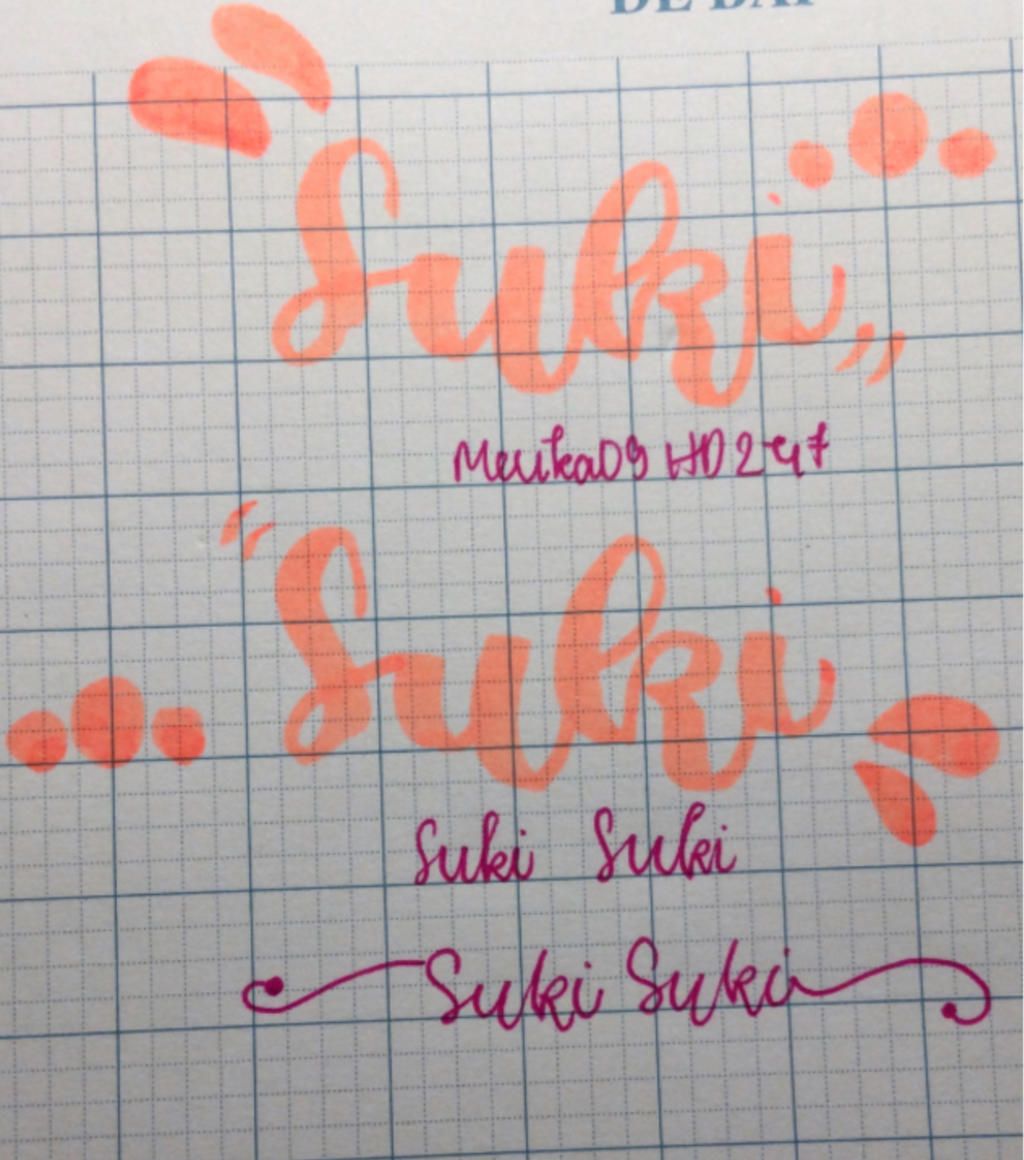 Suki
Meuka09 HD247
Suki
Suki Suki
Suki Suki